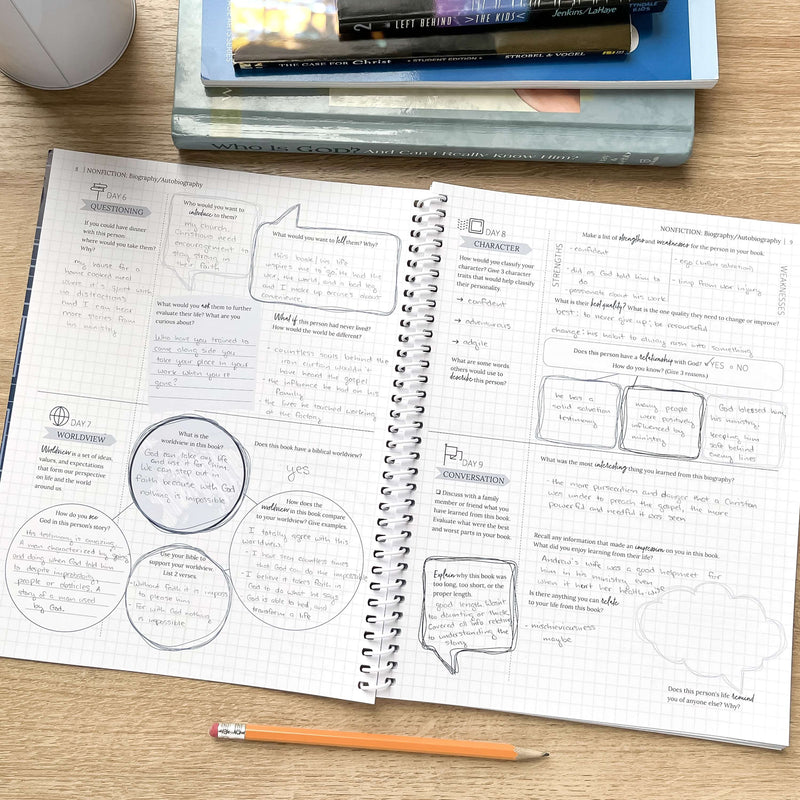 2 LEFT BEHIND >THE KIDS< Jenkins/LaHaye
TYNDALE KIDS
THE CASE FOR Christ • STUDENT EDITION • STROBEL & VOGEL
WHO IS GOD? And Can I Really Know Him?
8 | NONFICTION: Biography/Autobiography
DAY 6
QUESTIONING
If you could have dinner
with this person
where would you take them?
Why?
my house for a
home cooked meal
where it's quiet with
no distractions
and I can hear
more stories from
his ministry
Who would you want to
introduce to them?
my church
Christians need
encouragement to
stay strong in
their faith
What would you want to tell them? Why?
this book/his life
inspires me to go
the world, and a bad leg
and I make up excuses about
convenience.
What would you not them to further
evaluate their life? What are you
curious about?
Who have you trained to
come along side you
take your place in your
work when you're
gone?
What if this person had never lived?
How would the world be different?
• countless souls behind the
iron curtain wouldn't
have heard the gospel
• the influence he had on his
family
• the lives he touched working
at the factory
DAY 7
WORLDVIEW
Worldview is a set of ideas,
values, and expectations
that form our perspective
on life and the world
around us.
What is the
worldview in this book?
God can take any life
and use it for Him.
We can step out in
faith because with God
nothing is impossible
Does this book have a biblical worldview?
yes
How do you see
God in this person's story?
His testimony is amazing.
A man characterized by "going"
and doing when God told him
to despite improbability,
people or obstacles. A
story of a man used
by God.
Use your bible to
support your worldview.
List 2 verses.
• Without faith it is imposs
to please him
• For with God nothing
is impossible
How does the
worldview in this book compare
to your worldview? Give examples.
I totally agree with this
worldview.
• I have seen countless times
that God can do the impossible
• I believe it takes faith in
God to do what he says
God is able to heal, and
transform a life
NONFICTION: Biography/Autobiography | 9
DAY 8
CHARACTER
How would you classify your
character? Give 3 character
traits that would help classify
their personality.
→ confident
→ adventurous
→ adgile
What are some words
others would use to
describe this person?
Make a list of strengths and weaknesses for the person in your book.
STRENGTHS
• confident
• did as God told him to
do
• passionate about his work
WEAKNESSES
• ego (before salvation)
• limp from war injury
What is their best quality? What is the one quality they need to change or improve?
best: to never give up; be resourceful
change: his habit to diving rash into something
Does this person have a relationship with God? ✓YES ○ NO
How do you know? (Give 3 reasons.)
he has a
solid salvation
testimony
many people
were positively
influenced by
ministry
God blessed him,
his ministry
keeping him
safe behind
enemy lines
DAY 9
CONVERSATION
❑ Discuss with a family
member or friend what you
have learned from this book.
Evaluate what were the best
and worst parts in your book.
Explain why this book was
too long, too short, or the
proper length.
good length. Wasn't
to daunting or thick.
Covered all info relating
to understanding the
story.
What was the most interesting thing you learned from this biography?
• the more persecution and danger that a Christian
was under to preach the gospel, the more
powerful and needful it was seen
Recall any information that made an impression on you in this book.
What did you enjoy learning from their life?
Andrew's wife was a good helpmeet for
him in his ministry even
when it hurt her health wise
Is there anything you can relate
to your life from this book?
- mischieviousness
maybe
Does this person's life remind
you of anyone else? Why?